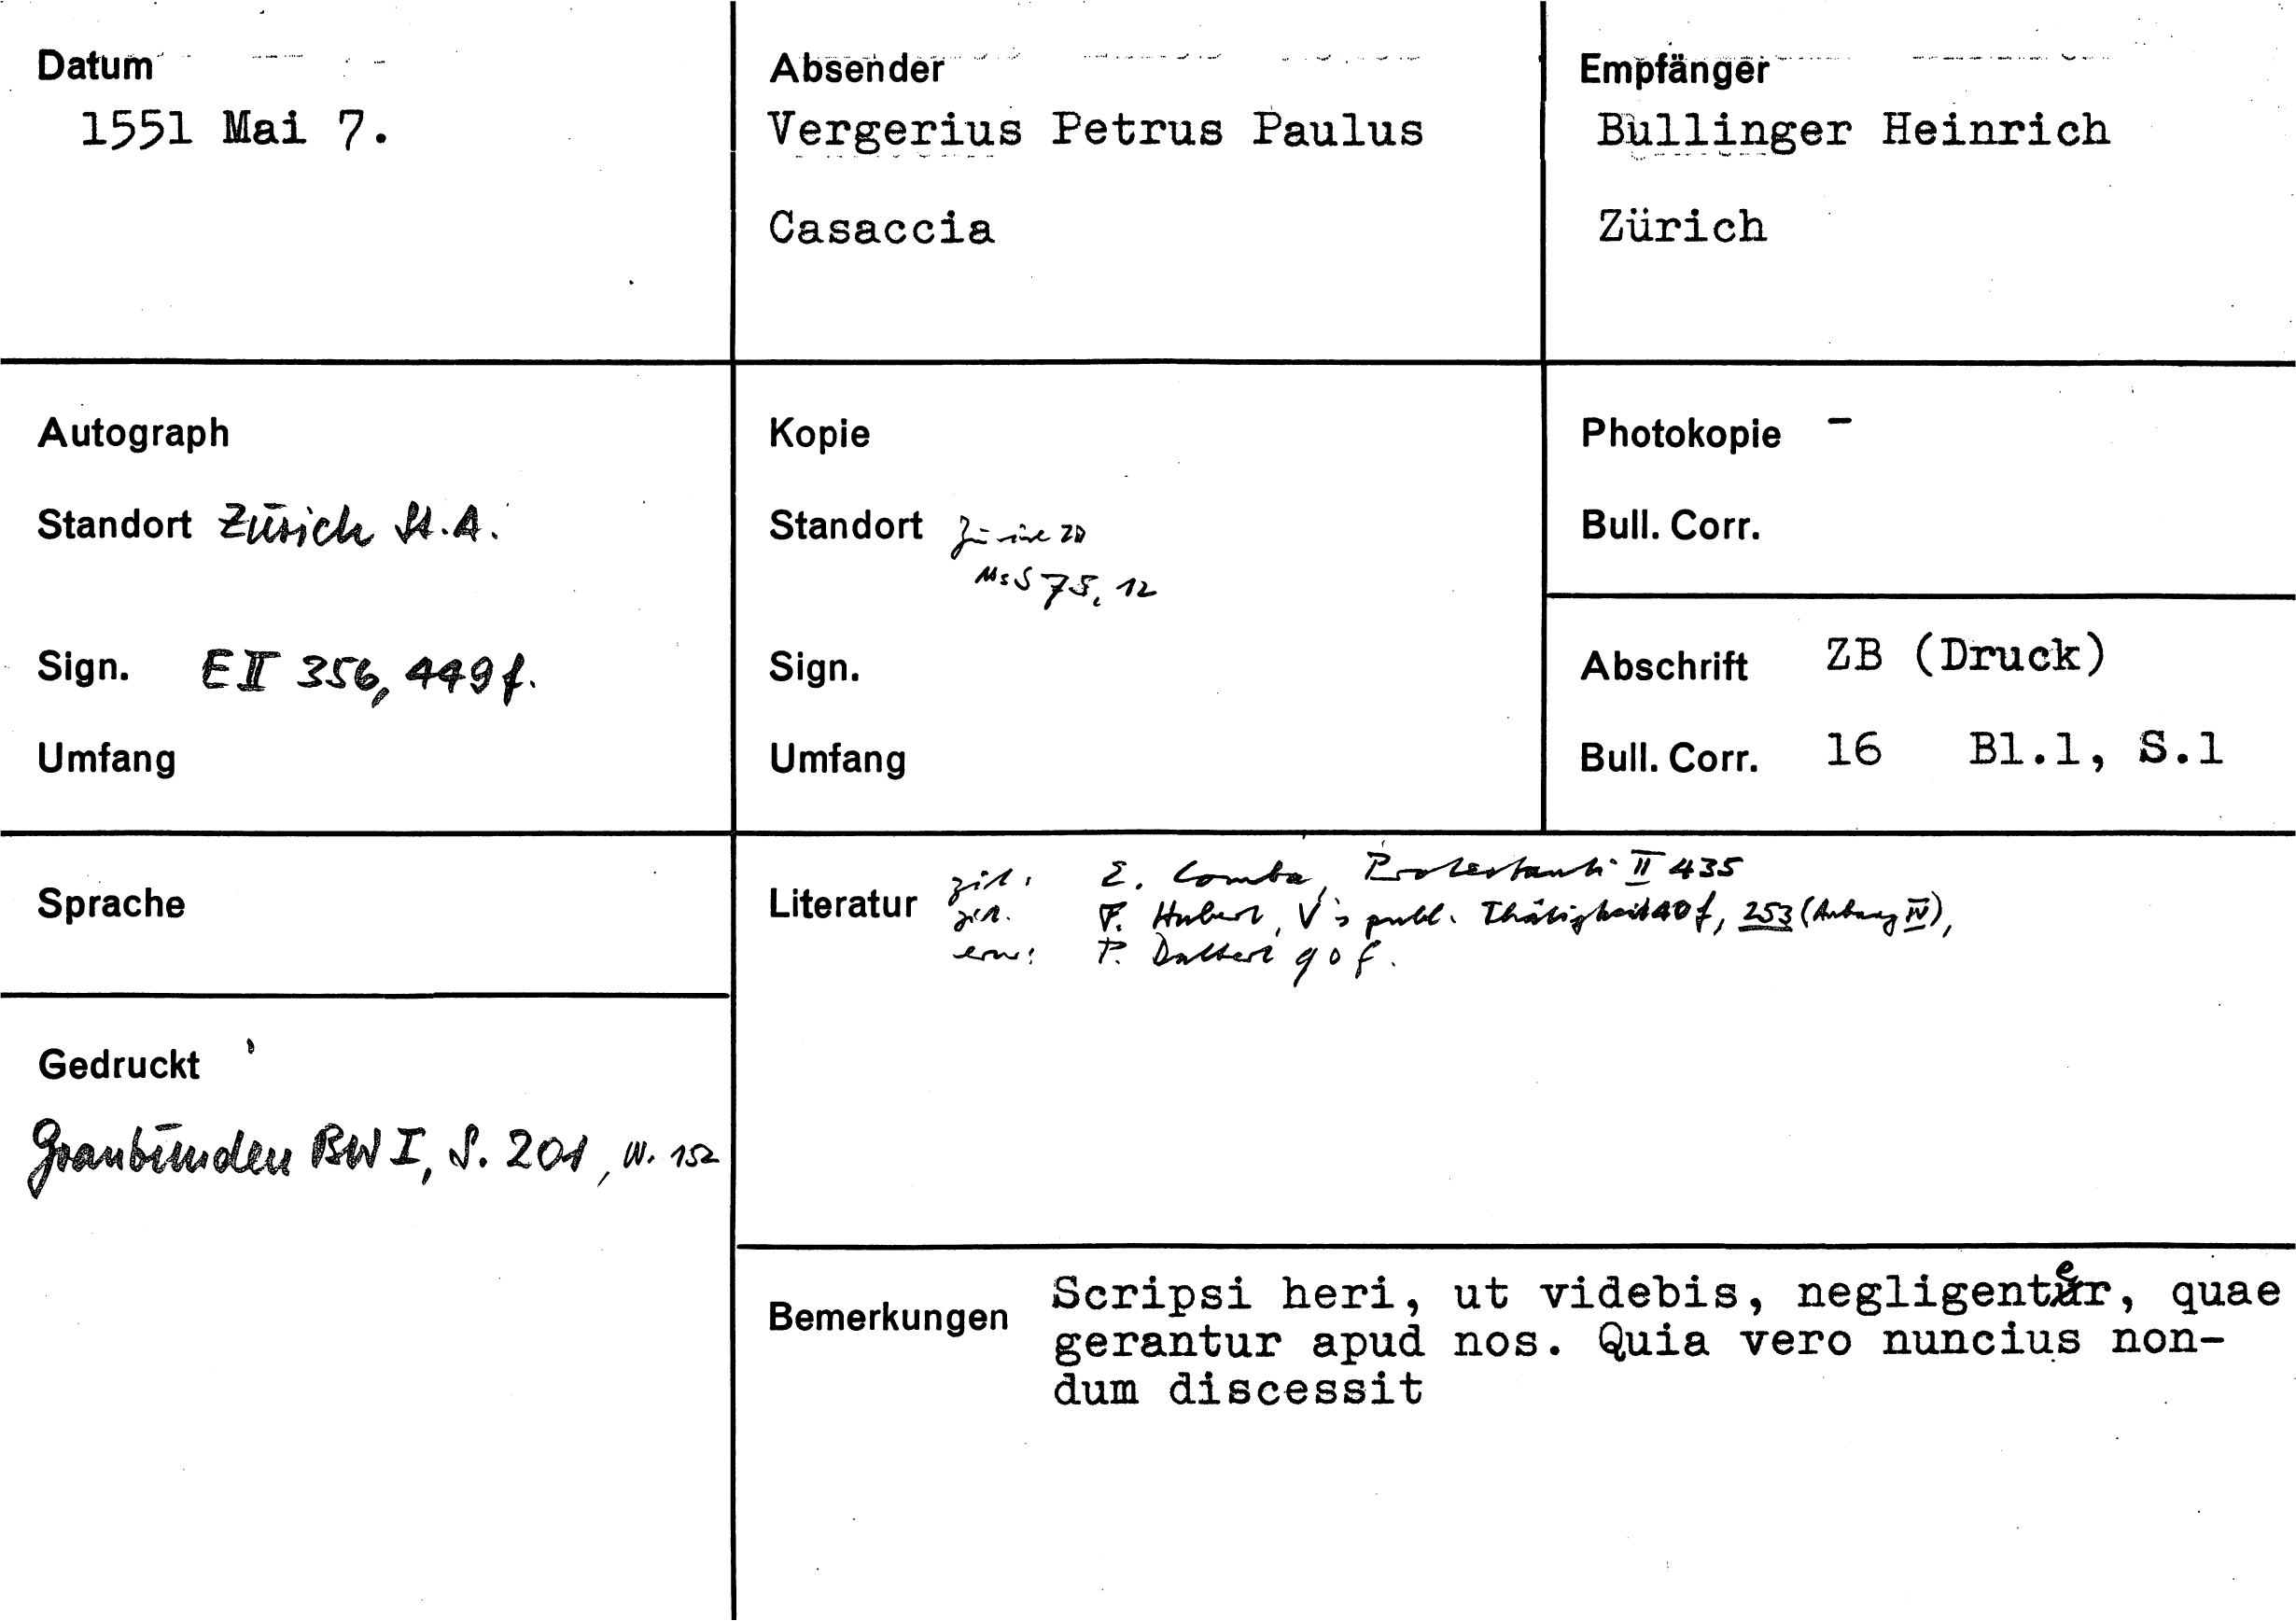 Datum
1551 Mai 7.
Absender
Vergerius Petrus Paulus
Casaccia
Empfänger
Bullinger Heinrich
Zürich
Autograph
Standort Zürich St.A.
Sign. E II 356, 449 f.
Umfang
Kopie
Standort Zürich ZB
Ms S 75, 12
Sign.
Umfang
Photokopie –
Bull. Corr.
Abschrift ZB (Druck)
Bull. Corr. 16 Bl.1, S.1
Sprache
Literatur zit. E. Comba, Protestanti II 435
zit. F. Hubert, V's publ. Thätigkeit 40 f, 253 (Anhang IV),
erw: P. Dalbert 90 f.
Gedruckt
Graubünden BW I, S. 201, N. 152
Bemerkungen Scripsi heri, ut videbis, negligenter, quae
gerantur apud nos. Quia vero nuncius non-
dum discessit